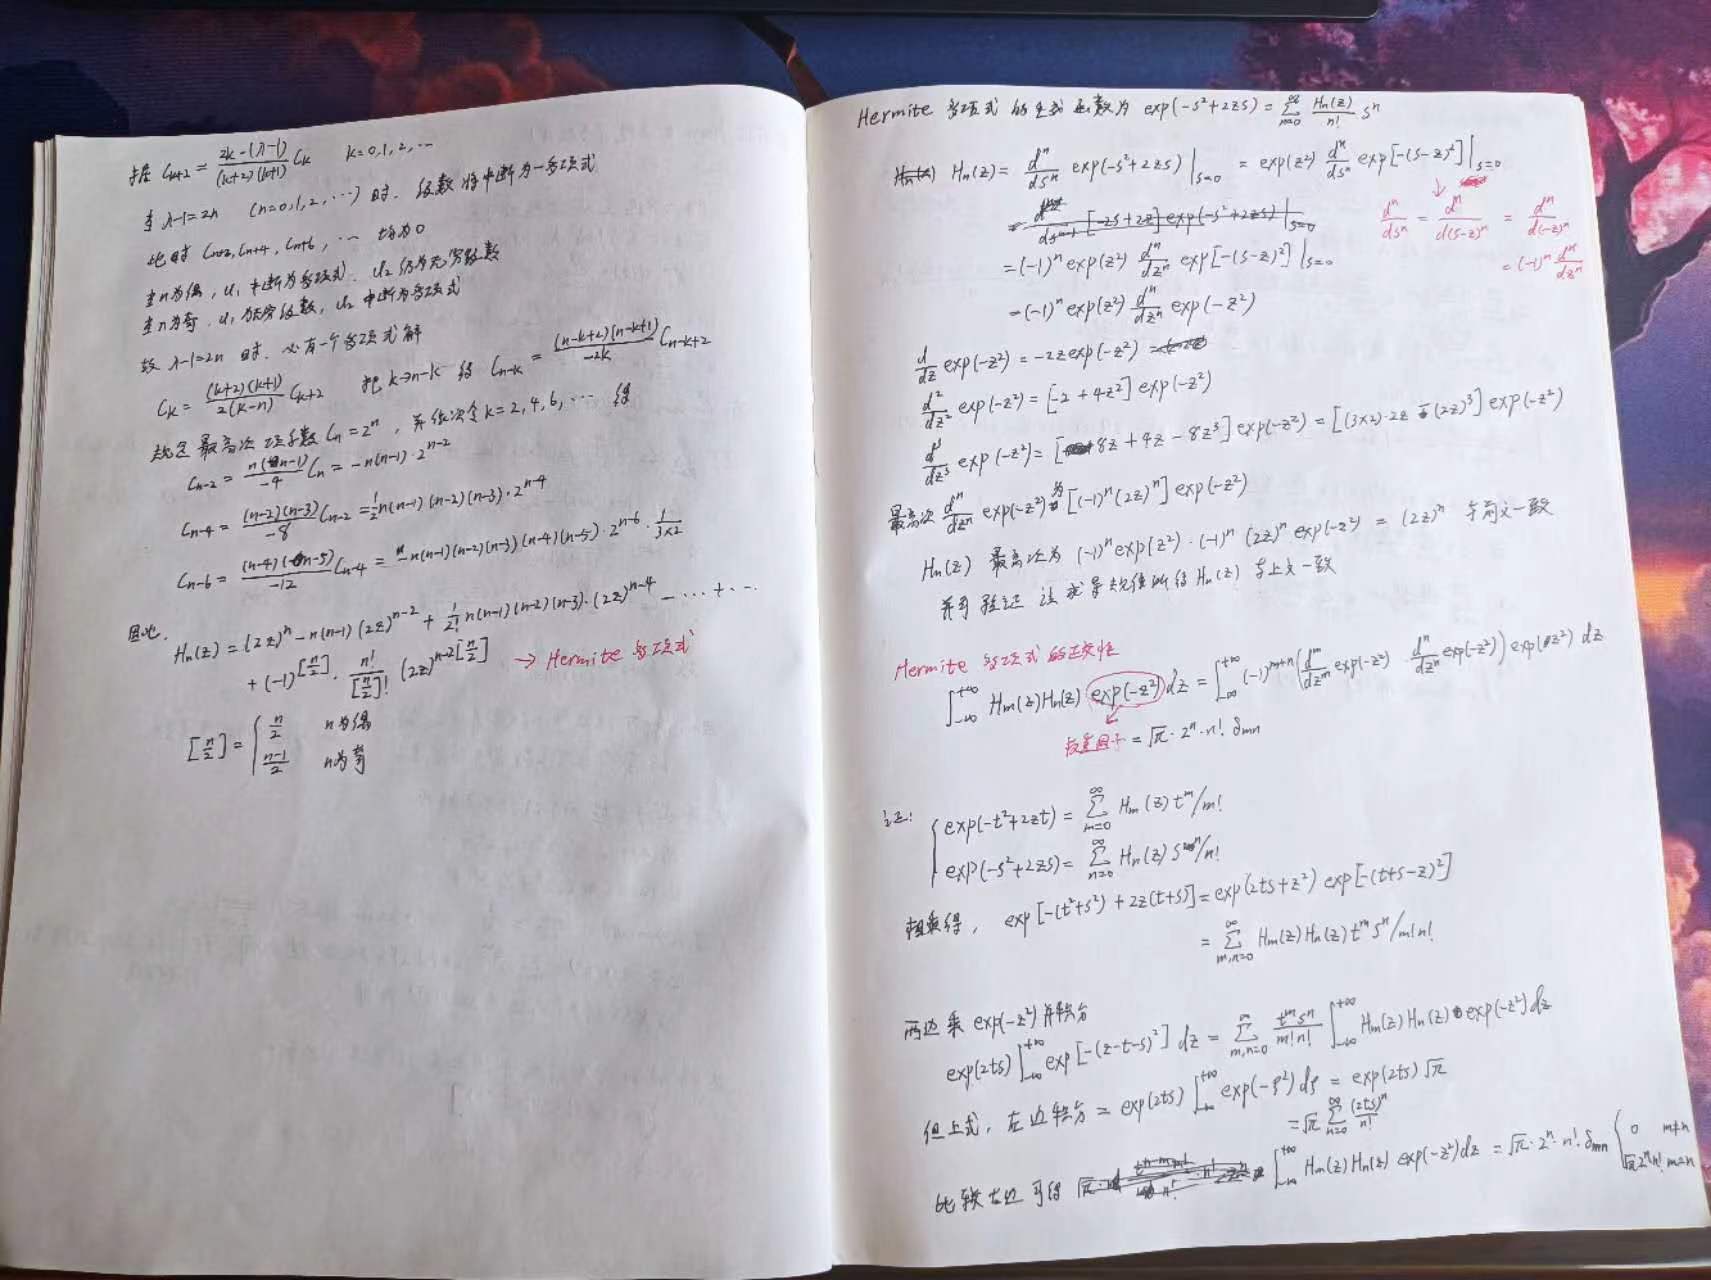 按 C_{k+2} = \frac{2k-(λ-1)}{(k+2)(k+1)} C_k   k=0,1,2,…
当 λ-1=2n   (n=0,1,2,…) 时. 级数将中断为一多项式
此时 C_{n+2}, C_{n+4}, C_{n+6}, … 均为0
当n为偶, u_1 中断为多项式. u_2 仍为无穷级数
当n为奇. u_1 为无穷级数, u_2 中断为多项式
故 λ-1=2n 时. 必有一个多项式解
C_k = \frac{(k+2)(k+1)}{2(k-n)} C_{k+2}   把 k→n-k 得 C_{n-k} = \frac{(n-k+2)(n-k+1)}{-2k} C_{n-k+2}
规定最高次项系数 C_n = 2^n, 并依次令 k=2,4,6,… 得
C_{n-2} = \frac{n(n-1)}{-4} C_n = -n(n-1)·2^{n-2}
C_{n-4} = \frac{(n-2)(n-3)}{-8} C_{n-2} = \frac{1}{2} n(n-1)(n-2)(n-3)·2^{n-4}
C_{n-6} = \frac{(n-4)(n-5)}{-12} C_{n-4} = -n(n-1)(n-2)(n-3)(n-4)(n-5)·2^{n-6}·\frac{1}{3×2}
因此.
H_n(z) = (2z)^n - n(n-1)(2z)^{n-2} + \frac{1}{2!} n(n-1)(n-2)(n-3)·(2z)^{n-4} - … + …
+ (-1)^{[\frac{n}{2}]} · \frac{n!}{[\frac{n}{2}]!} (2z)^{n-2[\frac{n}{2}]} → Hermite 多项式
[\frac{n}{2}] = { \frac{n}{2}   n为偶
\frac{n-1}{2}   n为奇
Hermite 多项式的生成函数为 exp(-s²+2zs) = \sum_{n=0}^{∞} \frac{H_n(z)}{n!} s^n
H_n(z) = \frac{d^n}{ds^n} exp(-s²+2zs) |_{s=0} = exp(z²) \frac{d^n}{ds^n} exp[-(s-z)²] |_{s=0}
\frac{d^n}{ds^n} = \frac{d^n}{d(s-z)^n} = \frac{d^n}{d(-z)^n}
= (-1)^n \frac{d^n}{dz^n}
= (-1)^n exp(z²) \frac{d^n}{dz^n} exp[-(s-z)²] |_{s=0}
= (-1)^n exp(z²) \frac{d^n}{dz^n} exp(-z²)
\frac{d}{dz} exp(-z²) = -2z exp(-z²)
\frac{d²}{dz²} exp(-z²) = [-2+4z²] exp(-z²)
\frac{d³}{dz³} exp(-z²) = [8z+4z-8z³] exp(-z²) = [(3×2)·2z - (2z)³] exp(-z²)
最高次 \frac{d^n}{dz^n} exp(-z²) 为 [(-1)^n (2z)^n] exp(-z²)
H_n(z) 最高次为 (-1)^n exp(z²)·(-1)^n (2z)^n exp(-z²) = (2z)^n 与前文一致
并可验证 该求导规律所得 H_n(z) 与上文一致
Hermite 多项式的正交性
\int_{-∞}^{+∞} H_m(z)H_n(z) exp(-z²) dz = \int_{-∞}^{+∞} (-1)^{m+n} (\frac{d^m}{dz^m} exp(-z²) · \frac{d^n}{dz^n} exp(-z²)) exp(z²) dz
权重因子 = \sqrt{π}·2^n·n! δ_{mn}
证: { exp(-t²+2zt) = \sum_{m=0}^{∞} H_m(z) t^m/m!
exp(-s²+2zs) = \sum_{n=0}^{∞} H_n(z) s^n/n!
相乘得, exp[-(t²+s²)+2z(t+s)] = exp(2ts+z²) exp[-(t+s-z)²]
= \sum_{m,n=0}^{∞} H_m(z)H_n(z) t^m s^n/m!n!
两边乘 exp(-z²) 并积分
exp(2ts) \int_{-∞}^{+∞} exp[-(z-t-s)²] dz = \sum_{m,n=0}^{∞} \frac{t^m s^n}{m!n!} \int_{-∞}^{+∞} H_m(z)H_n(z) exp(-z²) dz
但上式, 左边积分 = exp(2ts) \int_{-∞}^{+∞} exp(-ρ²) dρ = exp(2ts) \sqrt{π}
= \sqrt{π} \sum_{n=0}^{∞} \frac{(2ts)^n}{n!}
比较左边可得 \int_{-∞}^{+∞} H_m(z)H_n(z) exp(-z²) dz = \sqrt{π}·2^n·n! δ_{mn} { 0   m≠n
\sqrt{π} 2^n n!   m=n